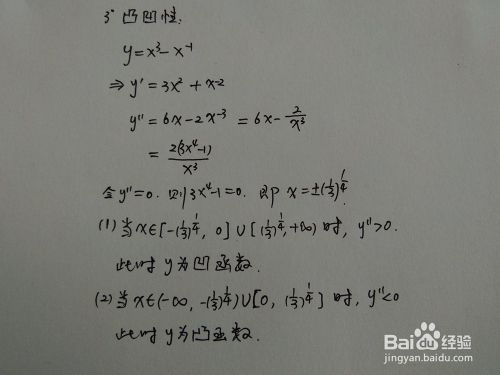 3° 凸凹性.
y=x³-x⁻¹
⇒ y'=3x²+x-2
y''=6x-2x⁻³=6x-2/x³
=2(3x⁴-1)/x³
令y''=0. 则3x⁴-1=0. 即 x=±(1/3)^¼
(1)当x∈[-(1/3)^¼, 0]∪[(1/3)^¼,+∞)时, y''>0.
此时 y为凹函数.
(2)当x∈(-∞, -(1/3)^¼)∪[0, (1/3)^¼]时, y''<0
此时 y为凸函数.
Baidu经验
jingyan.baidu.com